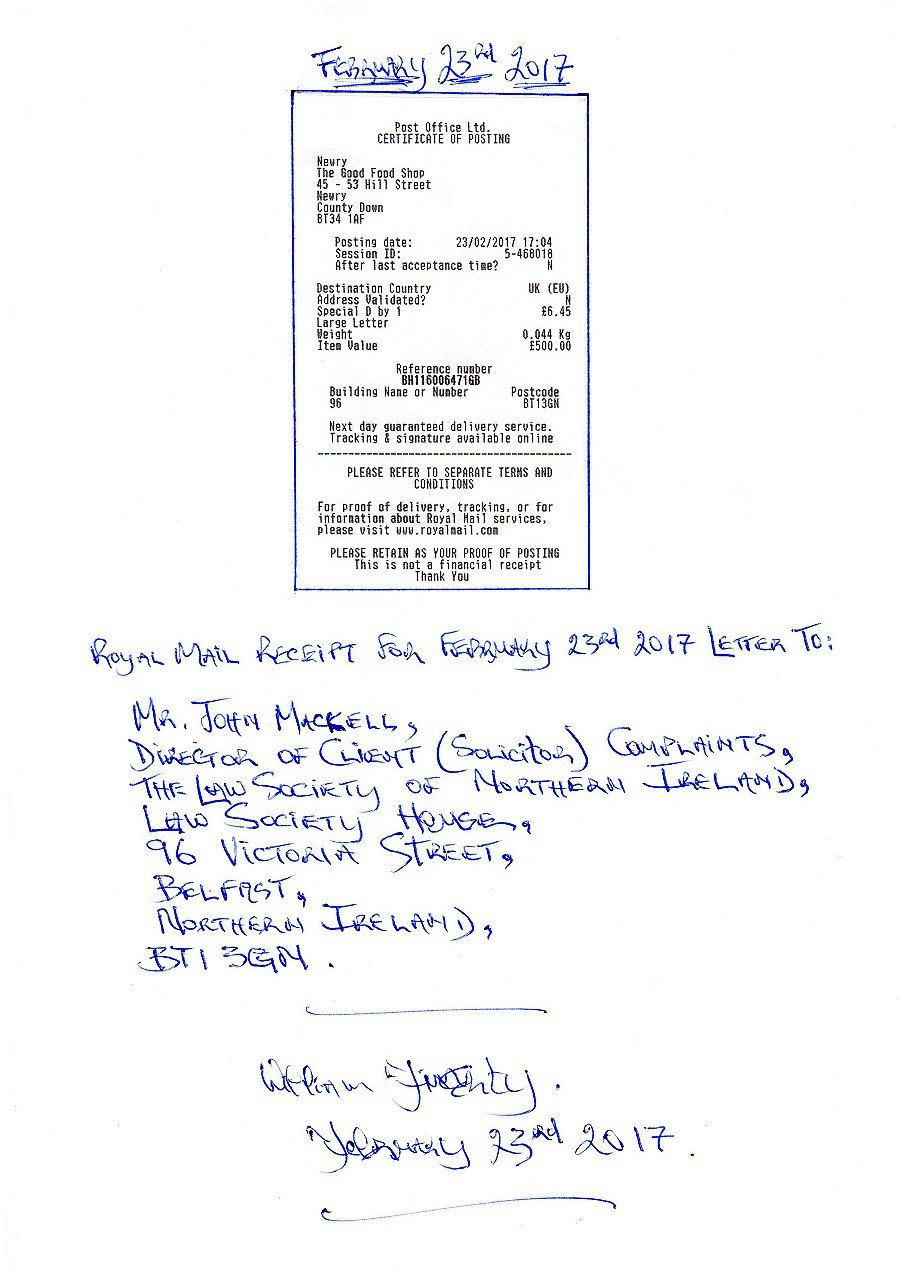 FEBRUARY 23rd 2017
Post Office Ltd.
CERTIFICATE OF POSTING
Newry
The Good Food Shop
45 - 53 Hill Street
Newry
County Down
BT34 1AF
Posting date: 23/02/2017 17:04
Session ID: 5-468018
After last acceptance time? N
Destination Country UK (EU)
Address Validated? N
Special D by 1 £6.45
Large Letter
Weight 0.044 Kg
Item Value £500.00
Reference number
BH116006471GB
Building Name or Number Postcode
96 BT13GN
Next day guaranteed delivery service.
Tracking & signature available online
PLEASE REFER TO SEPARATE TERMS AND
CONDITIONS
For proof of delivery, tracking, or for
information about Royal Mail services,
please visit www.royalmail.com
PLEASE RETAIN AS YOUR PROOF OF POSTING
This is not a financial receipt
Thank You
ROYAL MAIL RECEIPT FOR FEBRUARY 23rd 2017 LETTER TO:
MR. JOHN MACKELL,
DIRECTOR OF CLIENT (SOLICITOR) COMPLAINTS,
THE LAW SOCIETY OF NORTHERN IRELAND,
LAW SOCIETY HOUSE,
96 VICTORIA STREET,
BELFAST,
NORTHERN IRELAND,
BT1 3GN.
William
February 23rd 2017.